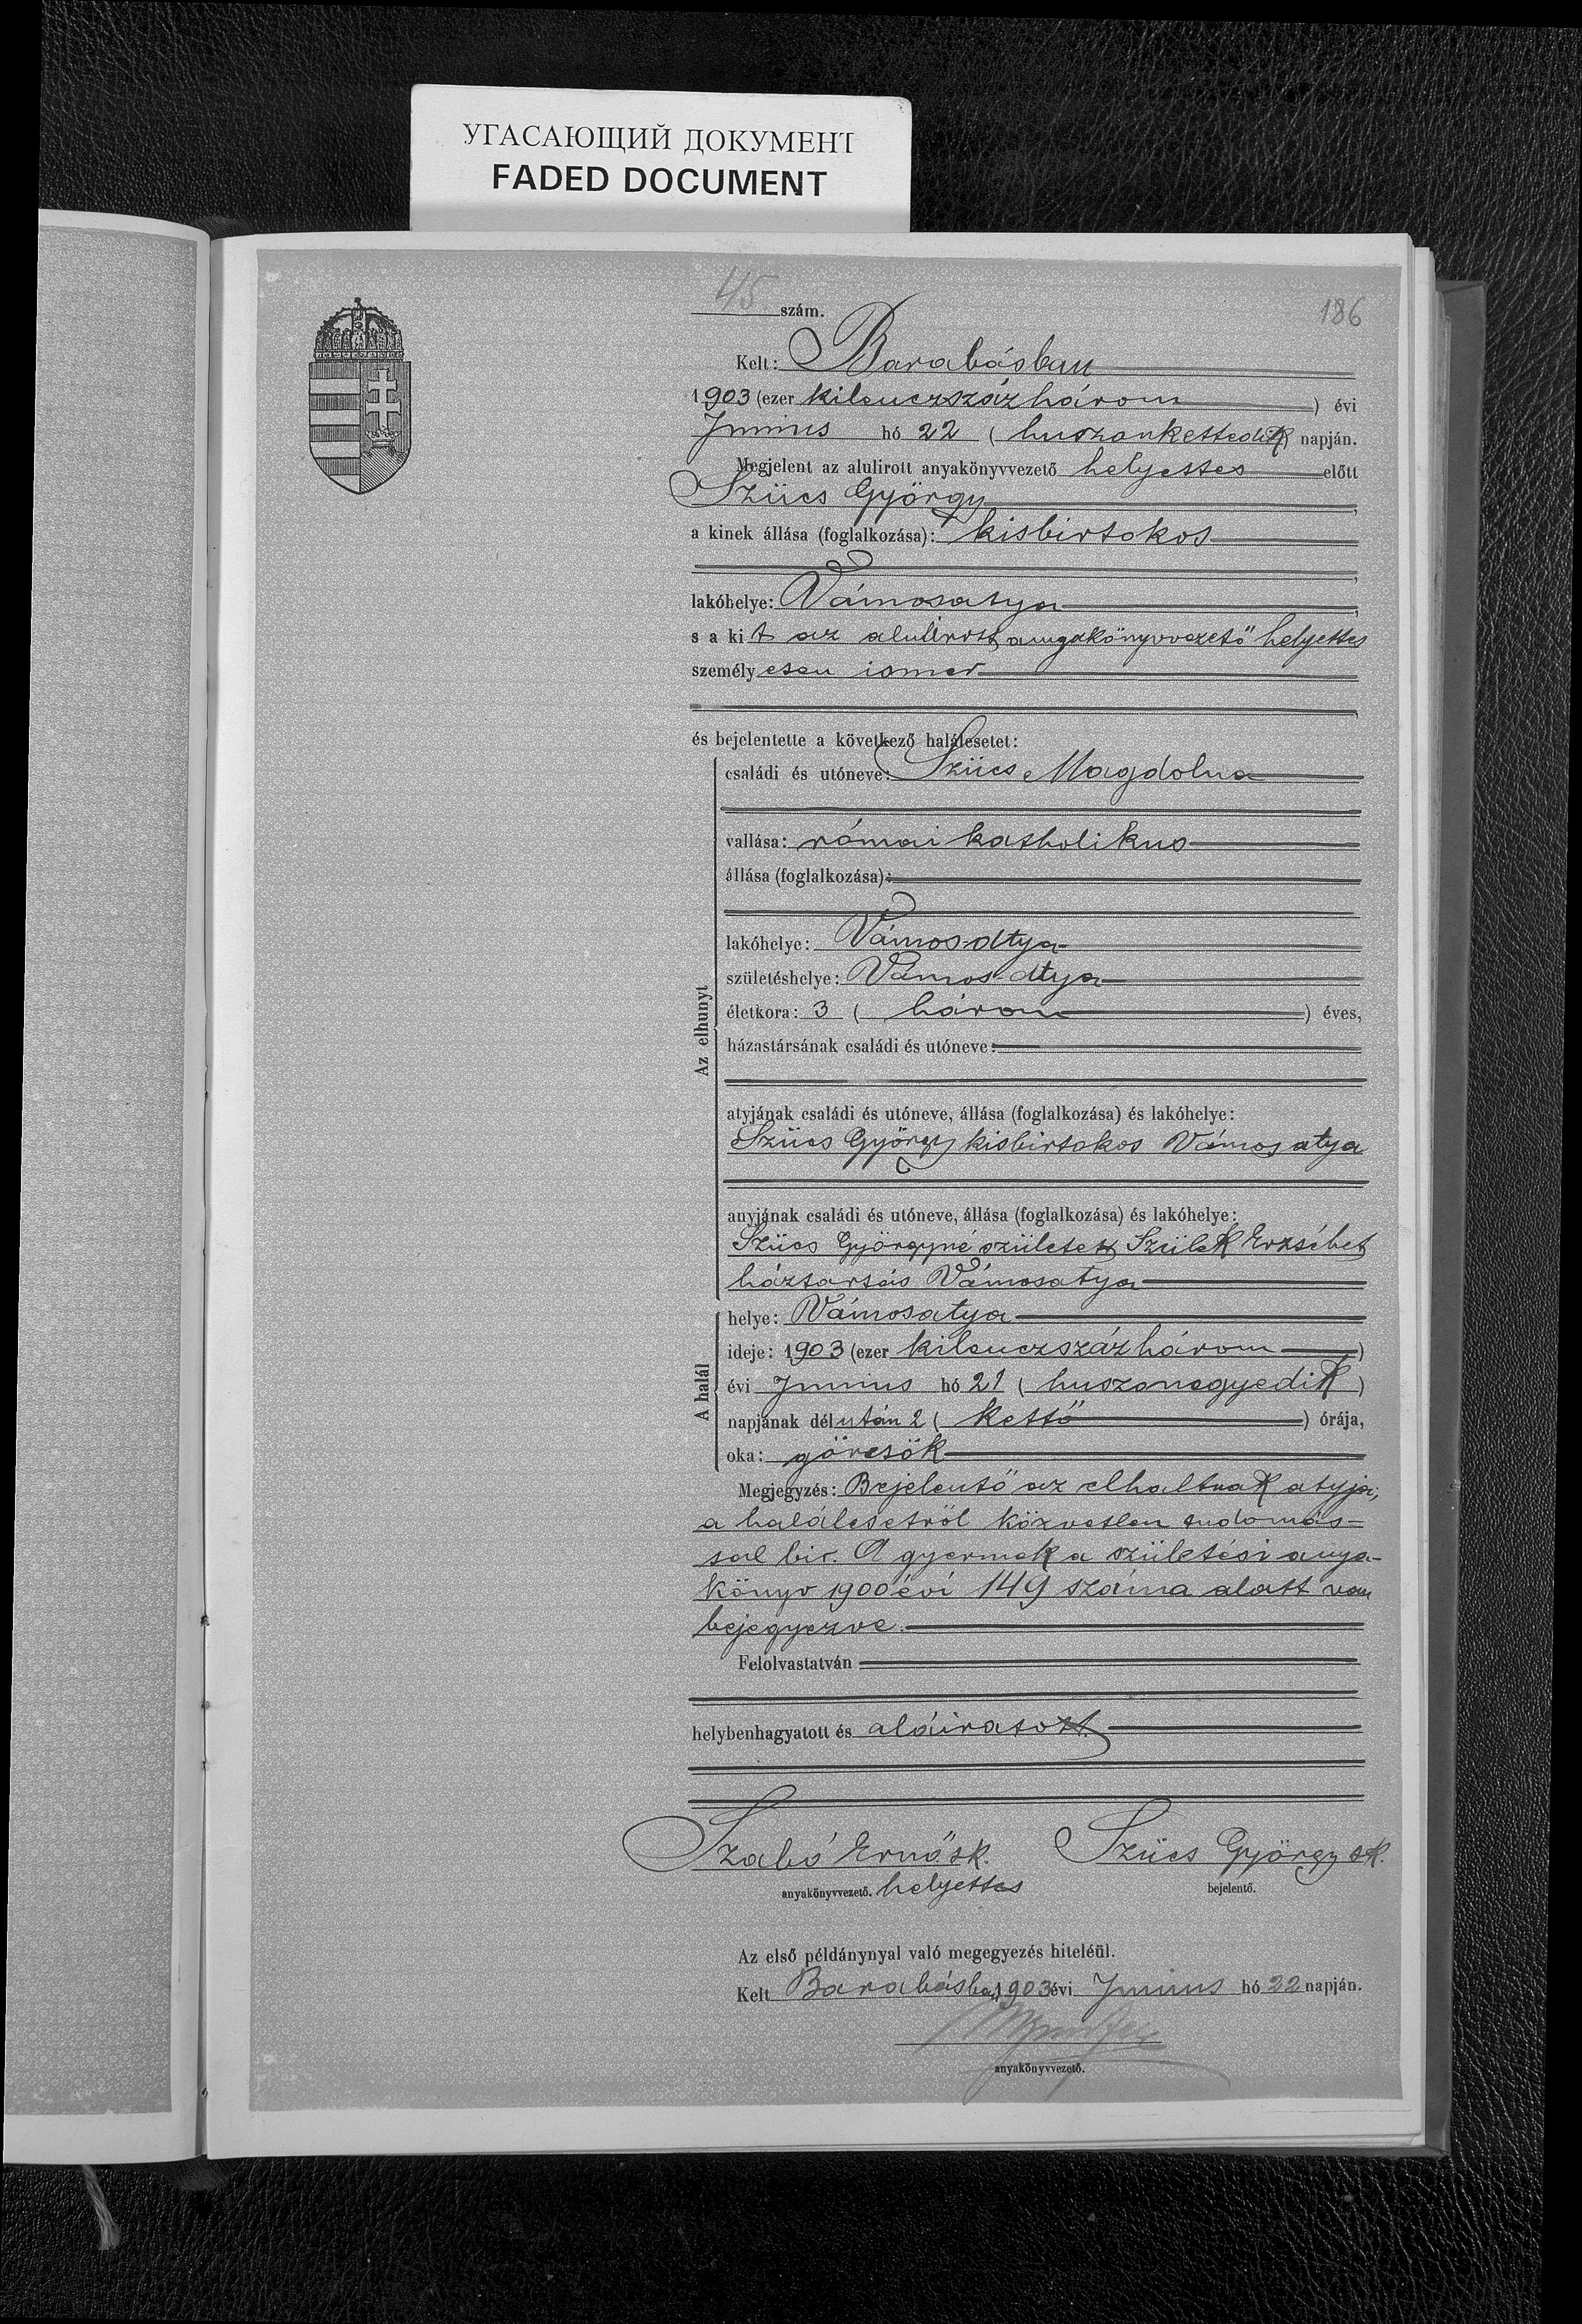 УГАСАЮЩИЙ ДОКУМЕНТ
FADED DOCUMENT
45 szám.
186
Kelt: Barabásban
1903 (ezer kilenczszázhárom) évi
Junius hó 22 (huszonkettedik) napján.
Megjelent az alulirott anyakönyvvezető helyettes előtt
Szücs György,
a kinek állása (foglalkozása): kisbirtokos
,
lakóhelye: Vámosatya,
s a kit az alulirott anyakönyvvezető helyettes
személyesen ismer
,
és bejelentette a következő halálesetet:
Az elhunyt
családi és utóneve: Szücs Magdolna
vallása: római katholikus
állása (foglalkozása):
lakóhelye: Vámos-atya
születéshelye: Vámos-atya
életkora: 3 (három) éves,
házastársának családi és utóneve:
atyjának családi és utóneve, állása (foglalkozása) és lakóhelye:
Szücs György kisbirtokos Vámosatya
anyjának családi és utóneve, állása (foglalkozása) és lakóhelye:
Szücs Györgyné született Szülek Erzsébet
háztartás Vámosatya
A halál
helye: Vámosatya
ideje: 1903 (ezer kilenczszázhárom)
évi Junius hó 21 (huszonegyedik)
napjának délután 2 (kettő) órája,
oka: görcsök
Megjegyzés: Bejelentő az elhaltnak atyja;
a halálesetről közvetlen tudomás-
sal bir. A gyermek a születési anya-
könyv 1900 évi 149 száma alatt van
bejegyezve.
Felolvastatván
helybenhagyatott és aláiratott.
Szabó Ernő sk. Szücs György sk.
anyakönyvvezető. helyettes bejelentő.
Az első példánynyal való megegyezés hiteléül.
Kelt Barabásban 1903 évi Junius hó 22 napján.
anyakönyvvezető.